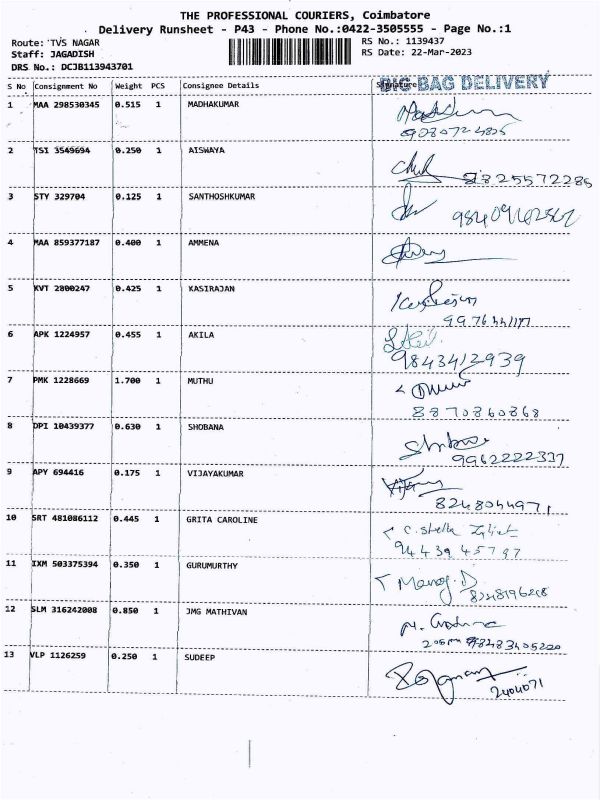 THE PROFESSIONAL COURIERS, Coimbatore
Delivery Runsheet - P43 - Phone No.:0422-3505555 - Page No.:1
Route: TVS NAGAR RS No.: 1139437
Staff: JAGADISH RS Date: 22-Mar-2023
DRS No.: DCJB113943701
BIG BAG DELIVERY
S No Consignment No Weight PCS Consignee Details Signature
1 MAA 298530345 0.515 1 MADHAKUMAR
2 TSI 3549694 0.250 1 AISWAYA
3 STY 329704 0.125 1 SANTHOSHKUMAR
4 MAA 859377187 0.400 1 AMMENA
5 KVT 2800247 0.425 1 KASIRAJAN
6 APK 1224957 0.455 1 AKILA
9843412939
7 PMK 1228669 1.700 1 MUTHU
8870860868
8 DPI 10439377 0.630 1 SHOBANA
9962222337
9 APY 694416 0.175 1 VIJAYAKUMAR
8248044971
10 SRT 481086112 0.445 1 GRITA CAROLINE
C. Stella
11 IXM 503375394 0.350 1 GURUMURTHY
Manoj. D
12 SLM 316242008 0.850 1 JMG MATHIVAN
13 VLP 1126259 0.250 1 SUDEEP
2404071